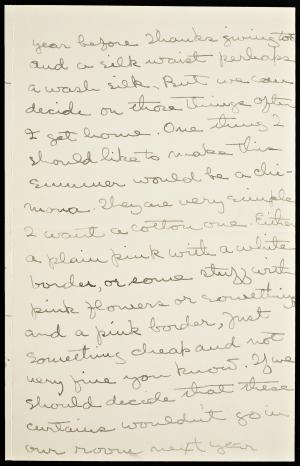 year before Thanksgiving too
and a silk waist perhaps
a wash silk. But we can
decide on those things after
I get home. One thing I
should like to make this
summer would be a chi-
mona. They are very simple
I want a cotton one. Either
a plain pink with a white
border, or some stuff with
pink flowers or something
and a pink border, Just
something cheap and not
very fine you know. If we
should decide that these
curtains wouldn't go in
our room next year